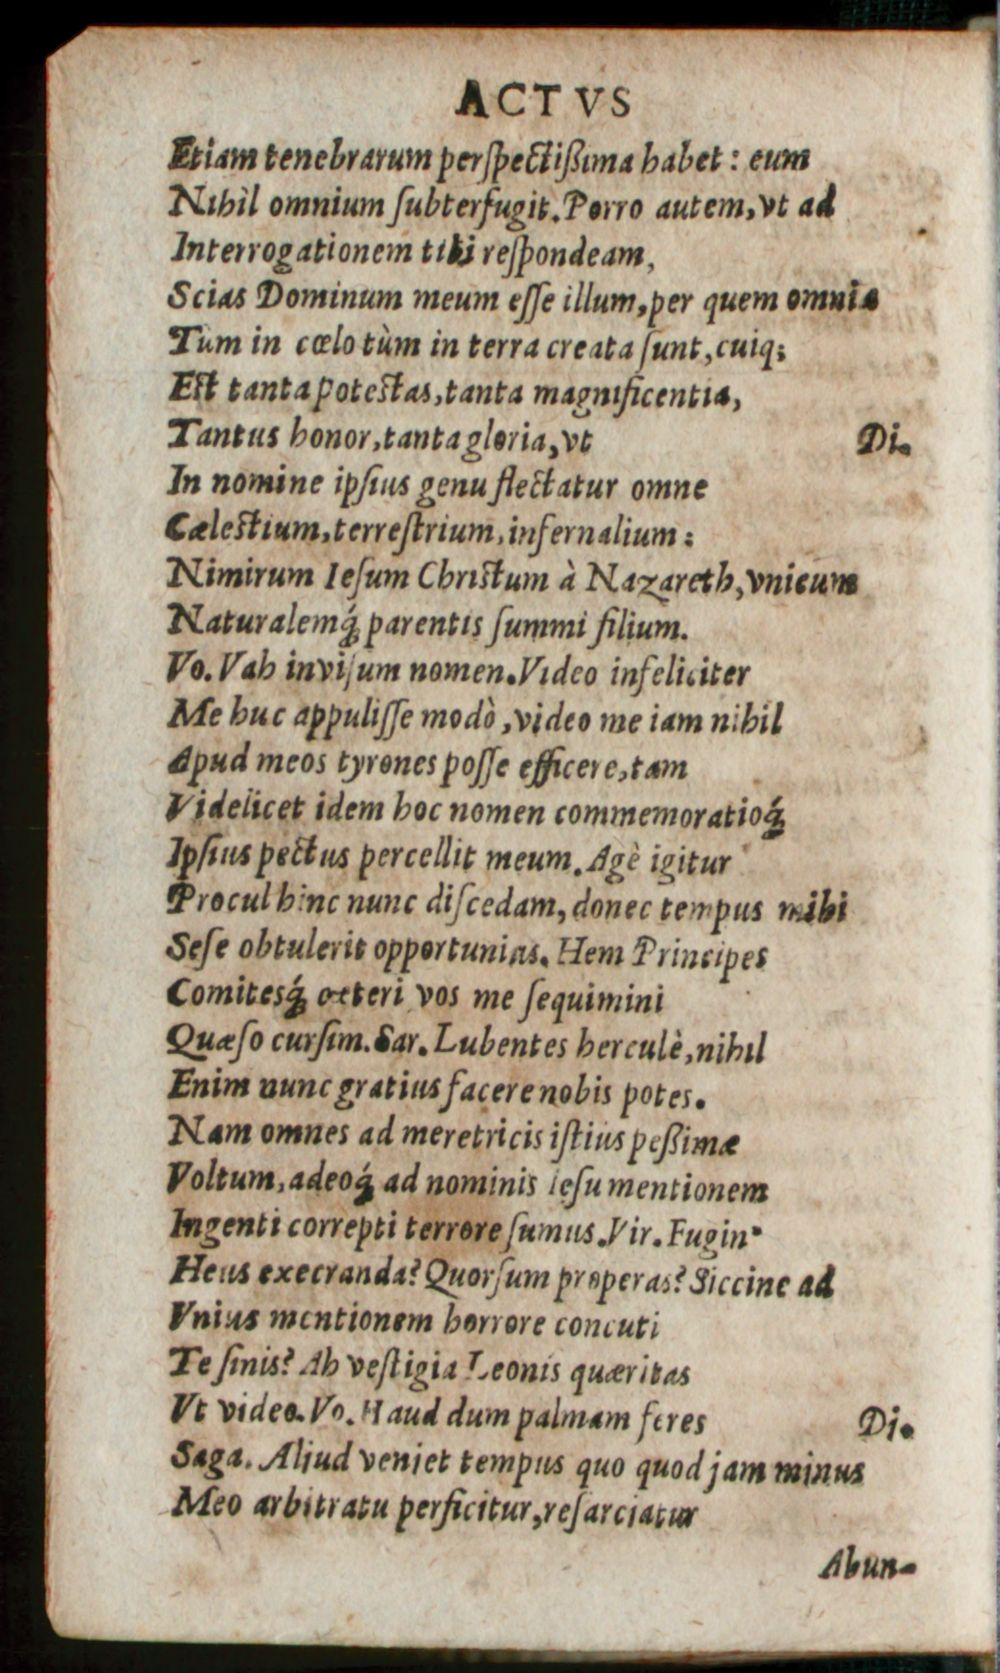 ACTVS
Etiam tenebrarum perſpectißima habet: eum
Nihil omnium ſubterfugit. Porro autem, vt ad
Interrogationem tibi reſpondeam,
Scias Dominum meum eſſe illum, per quem omnia
Tùm in cœlo tùm in terra creata ſunt, cuiq;
Eſt tanta poteſtas, tanta magnificentia,
Tantus honor, tanta gloria, vt Di.
In nomine ipſius genu flectatur omne
Cæleſtium, terreſtrium, infernalium:
Nimirum Ieſum Chriſtum à Nazareth, vnicum
Naturalemq́; parentis ſummi filium.
Vo. Vah inviſum nomen. Video infeliciter
Me huc appuliſſe modò, video me iam nihil
Apud meos tyrones poſſe efficere, tam
Videlicet idem hoc nomen commemoratioq́;
Ipſius pectus percellit meum. Agè igitur
Procul hinc nunc diſcedam, donec tempus mihi
Seſe obtulerit opportunius. Hem Principes
Comitesq́; cæteri vos me ſequimini
Quæſo curſim. Sar. Lubentes herculè, nihil
Enim nunc gratius facere nobis potes.
Nam omnes ad meretricis iſtius peßimæ
Voltum, adeoq́; ad nominis Ieſu mentionem
Ingenti correpti terrore ſumus. Vir. Fugin'
Heus execranda? Quorſum properas? Siccine ad
Vnius mentionem horrore concuti
Te ſinis? Ah veſtigia Leonis quæritas
Vt video. Vo. Haud dum palmam feres Di.
Saga. Aliud veniet tempus quo quod jam minus
Meo arbitratu perficitur, reſarciatur
Abun-